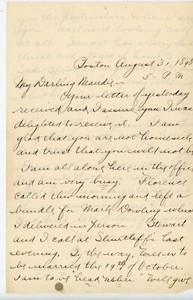 Boston August 31, 189
5- P.M
My Darling Maude:-
Your letter of yesterday
received and I assure you I was
delighted to receive it. I am
glad that you are not homesick
and trust that you will not be
I am all alone here in the office
and am very busy. Florence
called this morning and left a
bundle for Mark Dowling which
I delivered in person. Stewart
and I call at Shurtleff's last
evening. By the way, Grover is
to be married the 19th of October.
I am to be head usher. Will give